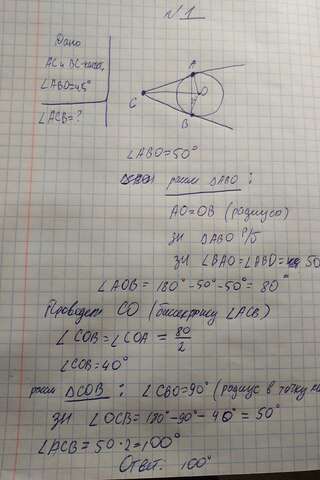 N 1
Дано
AC и BC-касат.
∠ABO=45°
∠ACB=?
A
C
O
B
∠ABO=50°
рассм ΔABO :
AO=OB (радиусы)
зн ΔABO р/б
зн ∠BAO=∠ABO= 50
∠AOB = 180°-50°-50°= 80°
Проведем CO (биссектриса ∠ACB)
∠COB=∠COA = 80/2
∠COB=40°
рассм ΔCOB : ∠CBO=90° (радиус в точку
зн ∠OCB= 180°-90°- 40° = 50°
∠ACB= 50·2=100°
Ответ: 100°